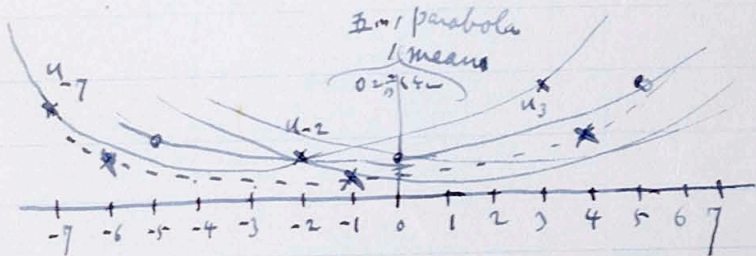 五つノ parabola
ノ mean
u-7
u-2
u3
-7 -6 -5 -4 -3 -2 -1 0 1 2 3 4 5 6 7